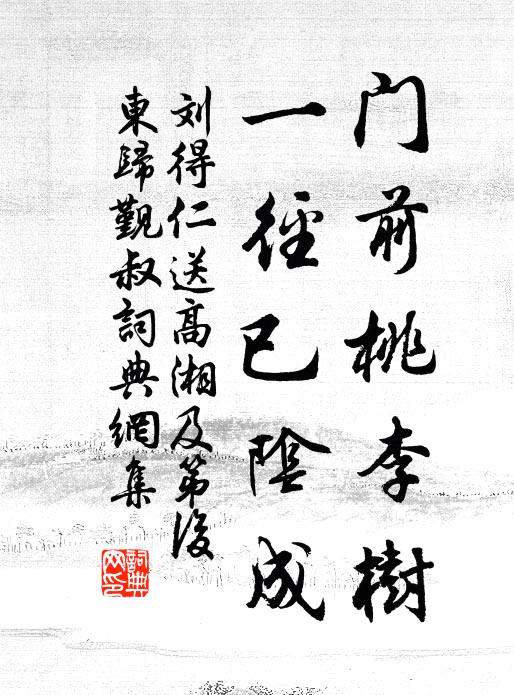 门前桃李樹
一径已陰成
刘得仁送高湘及第後
東歸覲叔詞典網集
詞典
网印